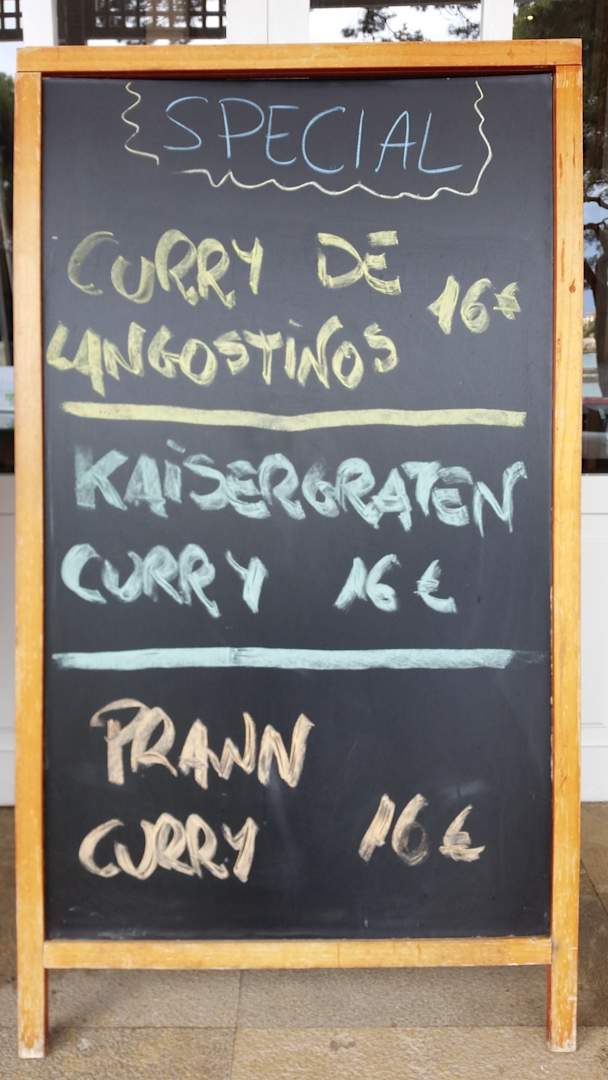 SPECIAL
CURRY DE
LANGOSTiNOS 16€
KAiSERGRATEN
CURRY 16€
PRAWN
CURRY 16€